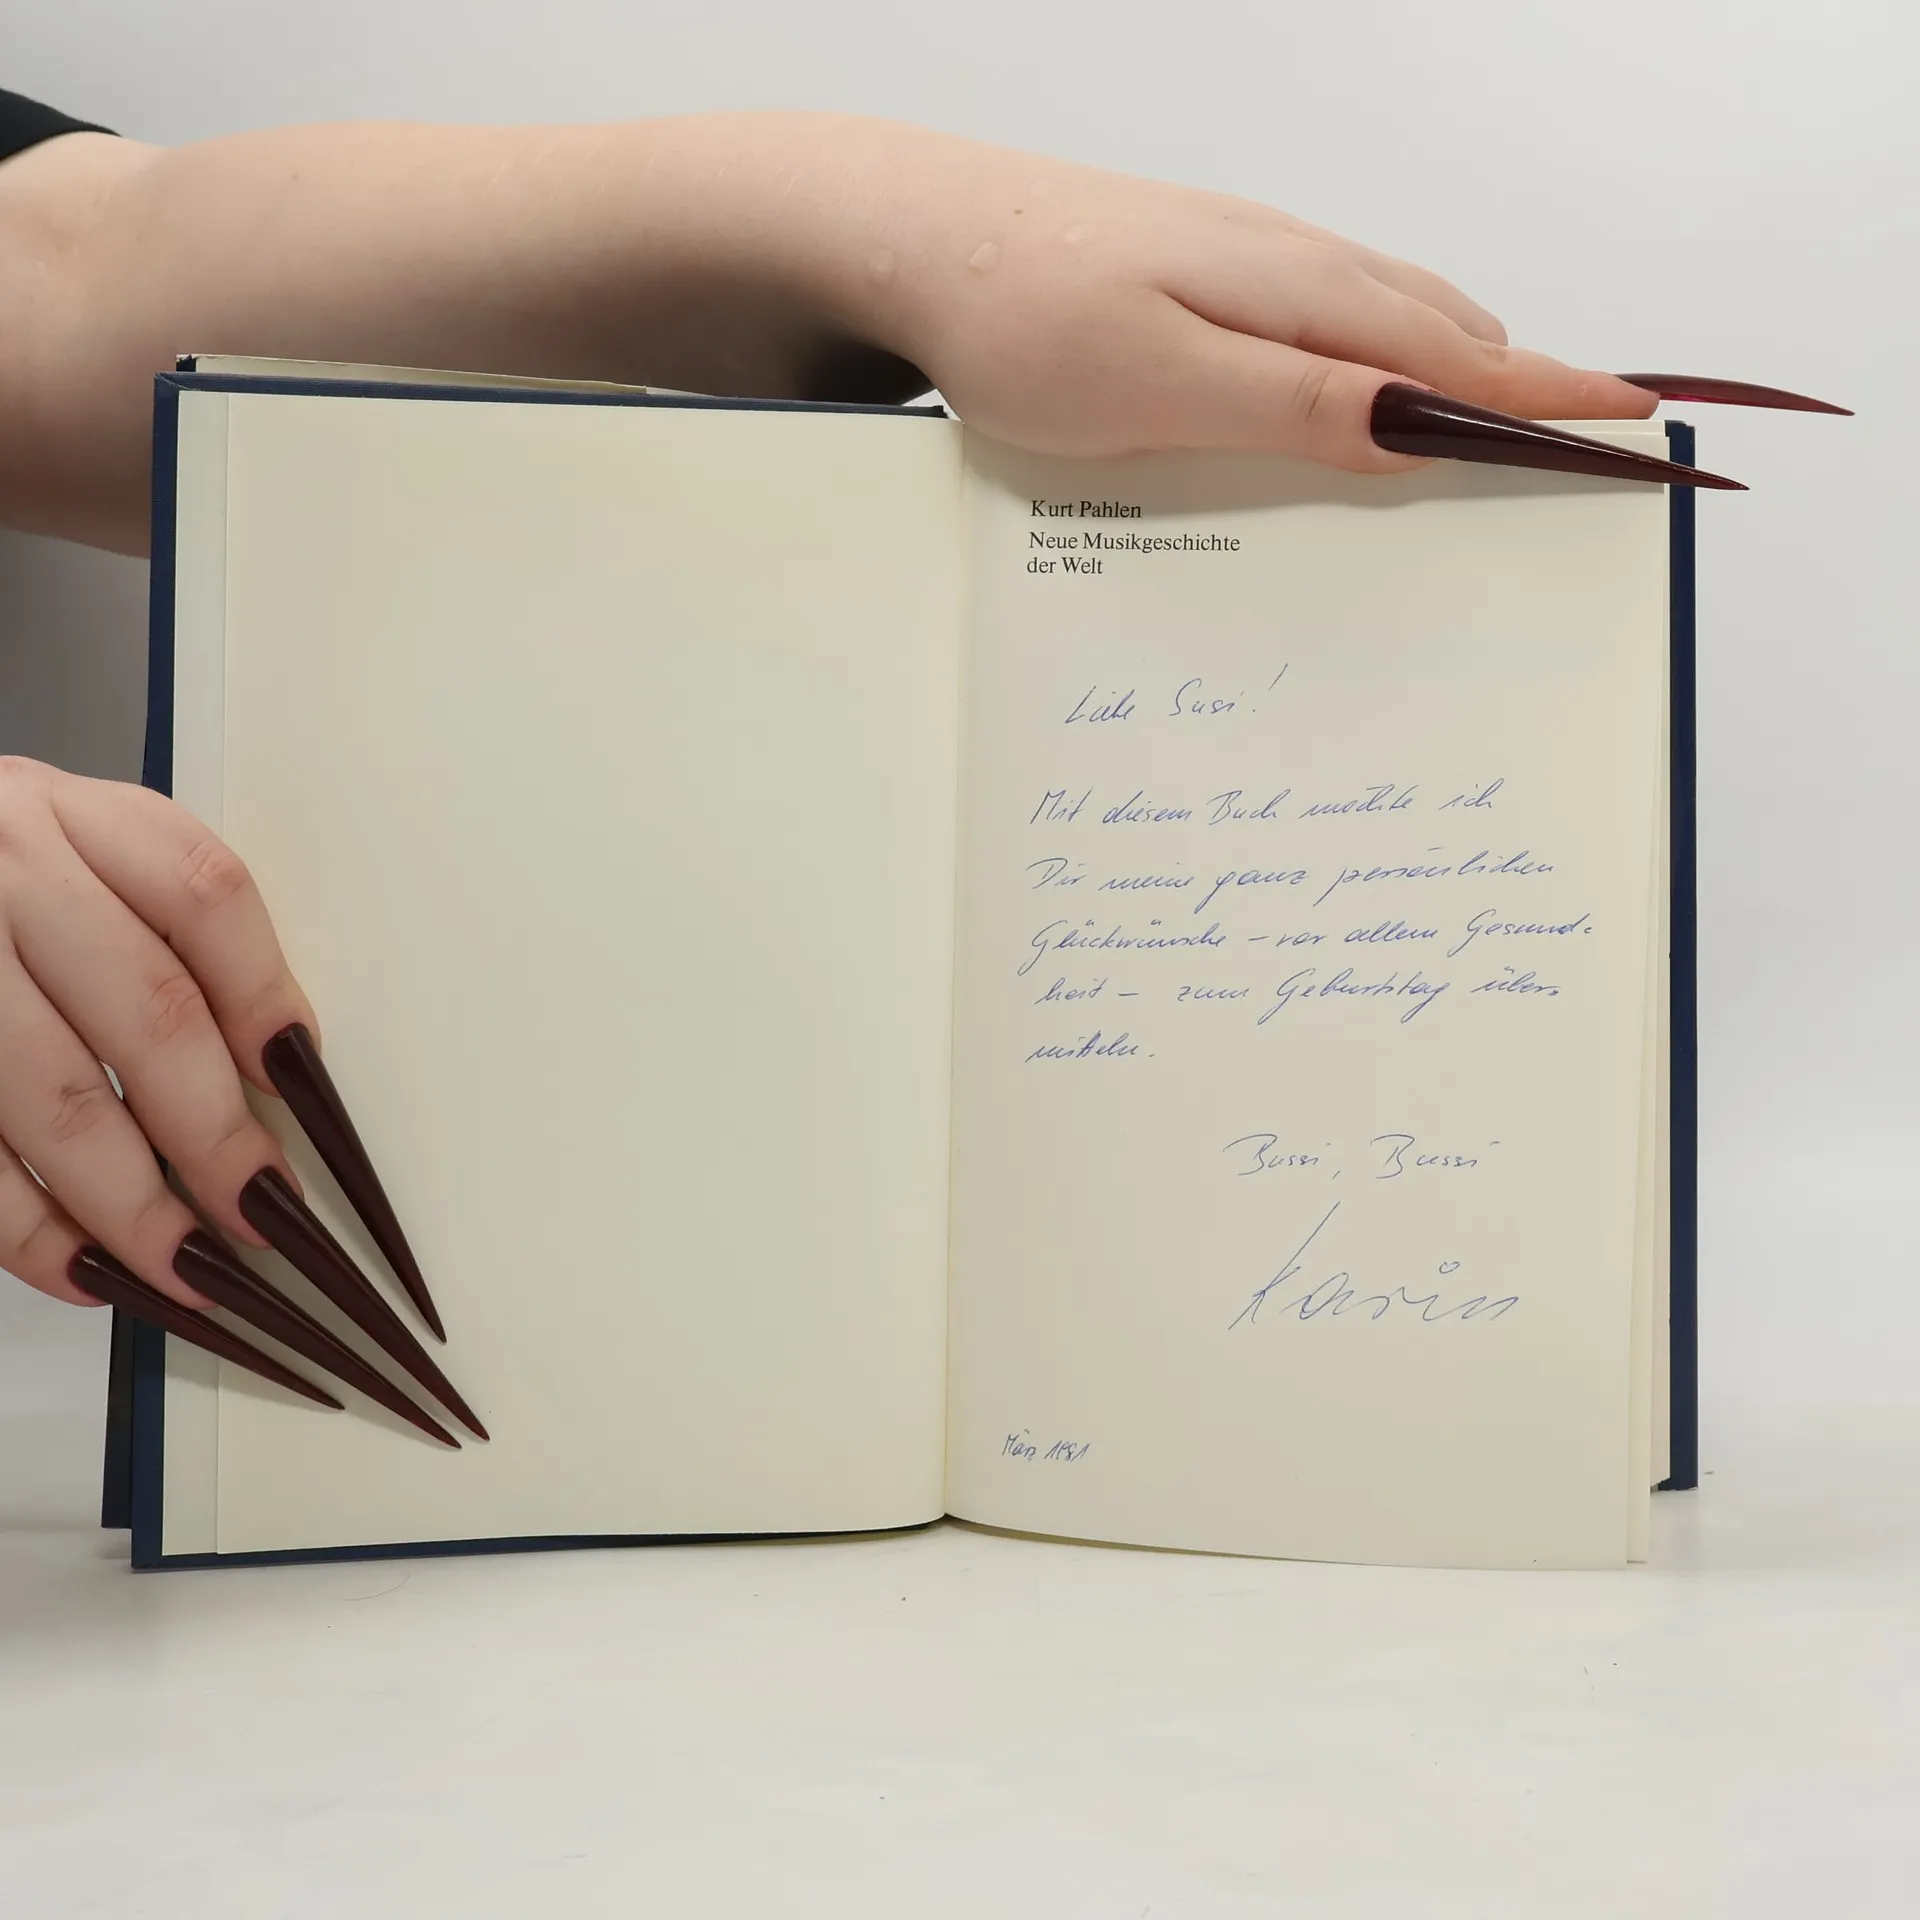 Kurt Pahlen
Neue Musikgeschichte
der Welt
Liebe Susi!
Mit diesem Buch möchte ich
Dir meine ganz persönlichen
Glückwünsche – vor allem Gesund-
heit – zum Geburtstag über-
mitteln.
Bussi, Bussi
Karin
März 1981